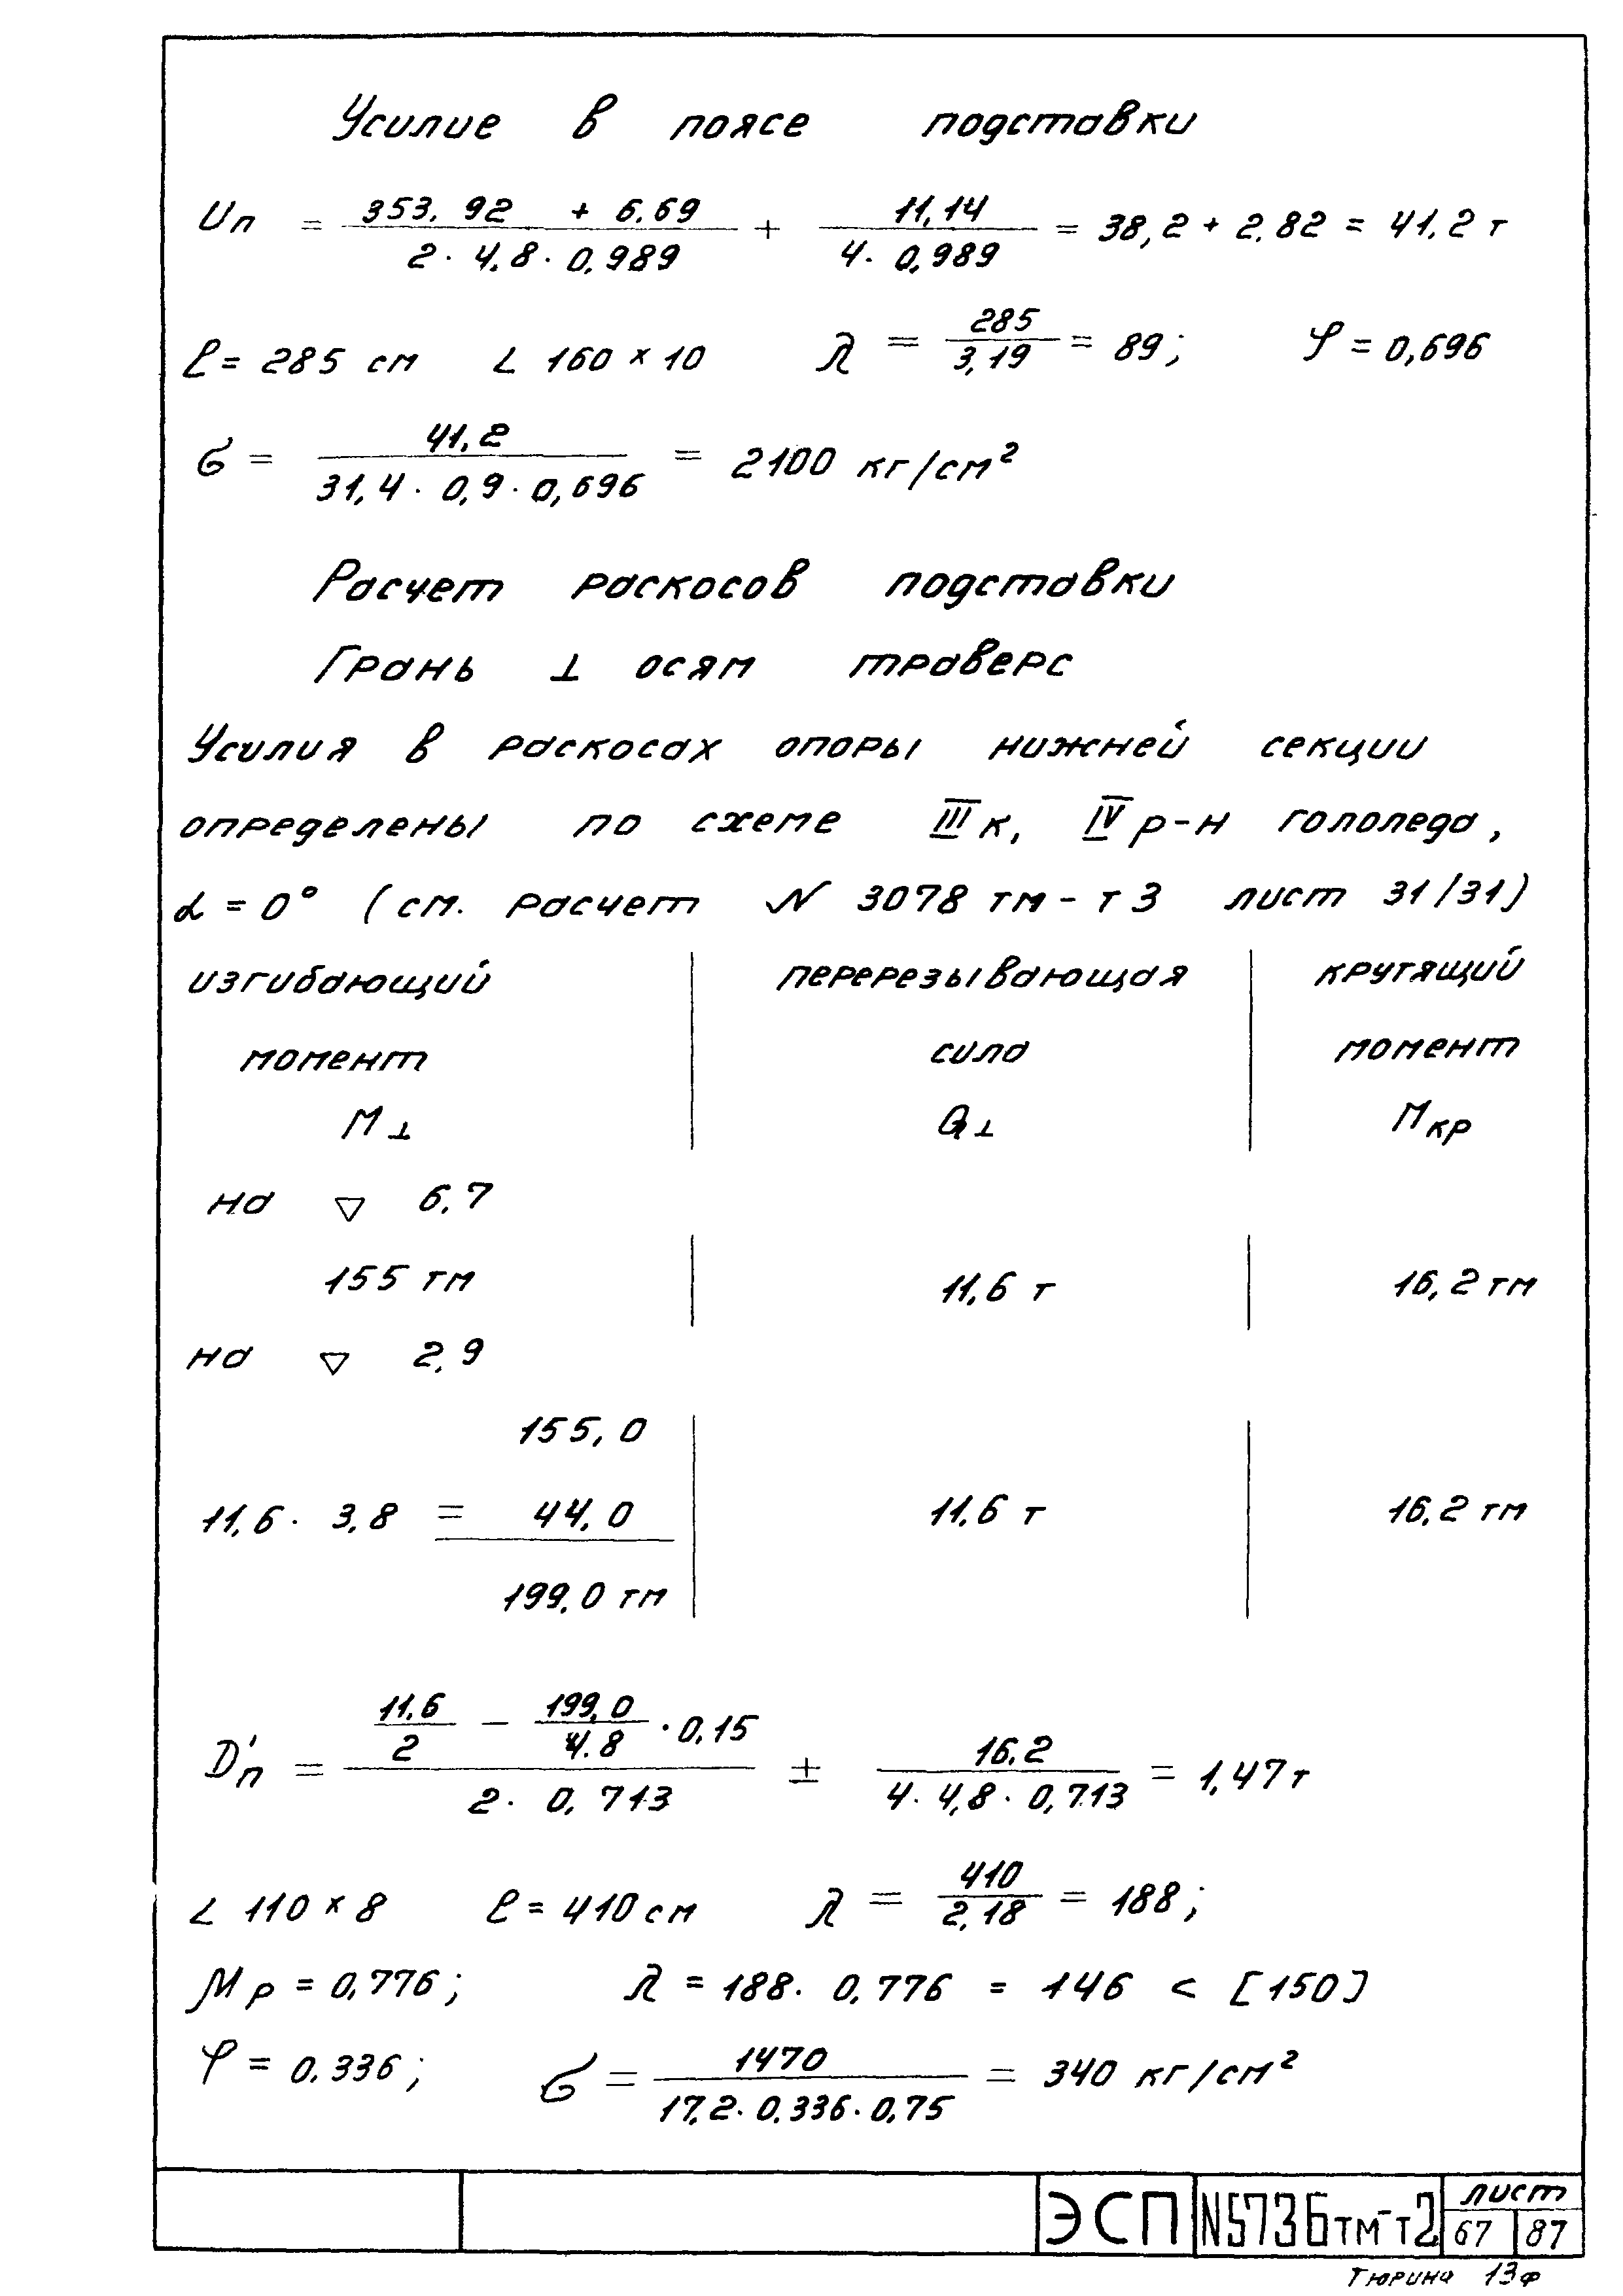 Усилие в поясе подставки
Uп = (353,92 + 6,69) / (2 · 4,8 · 0,989) + 11,14 / (4 · 0,989) = 38,2 + 2,82 = 41,2 т
ℓ = 285 см L 160 × 10 λ = 285 / 3,19 = 89; φ = 0,696
σ = 41,2 / (31,4 · 0,9 · 0,696) = 2100 кг/см²
Расчет раскосов подставки
Грань ⊥ осям траверс
Усилия в раскосах опоры нижней секции
определены по схеме III к, IV р-н гололеда,
α = 0° (см. расчет N 3078 тм - т 3 лист 31/31)
изгибающий | перерезывающая | крутящий
момент | сила | момент
M⊥ | Q⊥ | Mкр
на ▽ 6,7
155 тм | 11,6 т | 16,2 тм
на ▽ 2,9
155,0
11,6 · 3,8 = 44,0 | 11,6 т | 16,2 тм
199,0 тм
D'п = (11,6 / 2 − 199,0 / 4,8 · 0,15) / (2 · 0,713) ± 16,2 / (4 · 4,8 · 0,713) = 1,47 т
L 110 × 8 ℓ = 410 см λ = 410 / 2,18 = 188;
μр = 0,776; λ = 188 · 0,776 = 146 < [150]
φ = 0,336; σ = 1470 / (17,2 · 0,336 · 0,75) = 340 кг/см²
ЭСП N5736тм-т2 лист
67 87
Тюрина 13ф